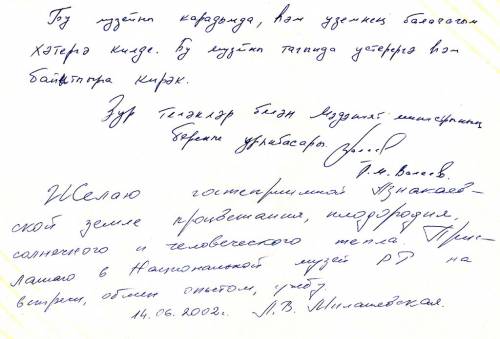 Бу музейны карадымда, һәм үземнең балачагым
хәтергә килде. Бу музейны тагында үстерергә һәм
байытырга кирәк.
Зур теләкләр белән Мәдәният министрының
беренче урынбасары
Р.М. Валеев.
Желаю гостеприимной Азнакаев-
ской земле процветания, плодородия,
солнечного и человеческого тепла. Приг-
лашаю в Национальный музей РТ на
встречи, обмен опытом, учебу
14.06.2002г. Л.В. Милашевская.